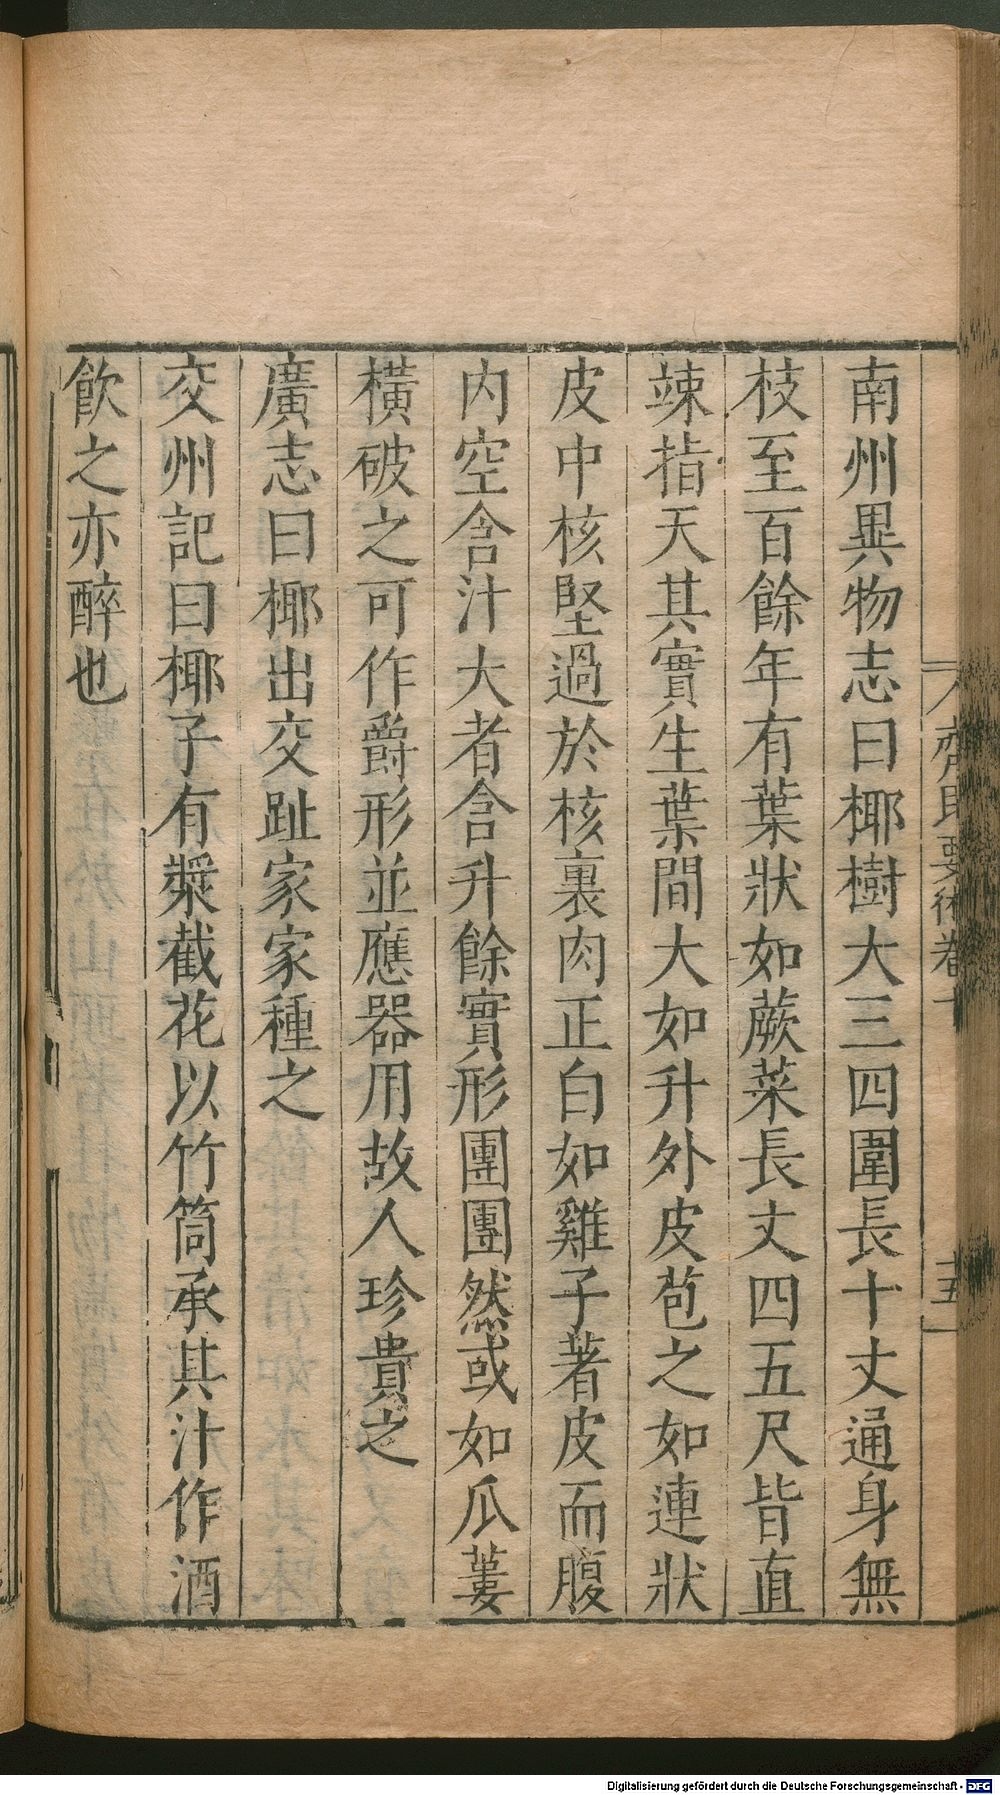 南州異物志曰椰樹大三四圍長十丈通身無
枝至百餘年有葉狀如蕨菜長丈四五尺皆直
竦指天其實生葉間大如升外皮苞之如連狀
皮中核堅過於核裏肉正白如雞子著皮而腹
内空含汁大者含升餘實形團團然或如瓜蔞
橫破之可作爵形並應器用故人珍貴之
廣志曰椰出交趾家家種之
交州記曰椰子有漿截花以竹筒承其汁作酒
飲之亦醉也
齊民要術卷十
十五
Digitalisierung gefördert durch die Deutsche Forschungsgemeinschaft - DFG